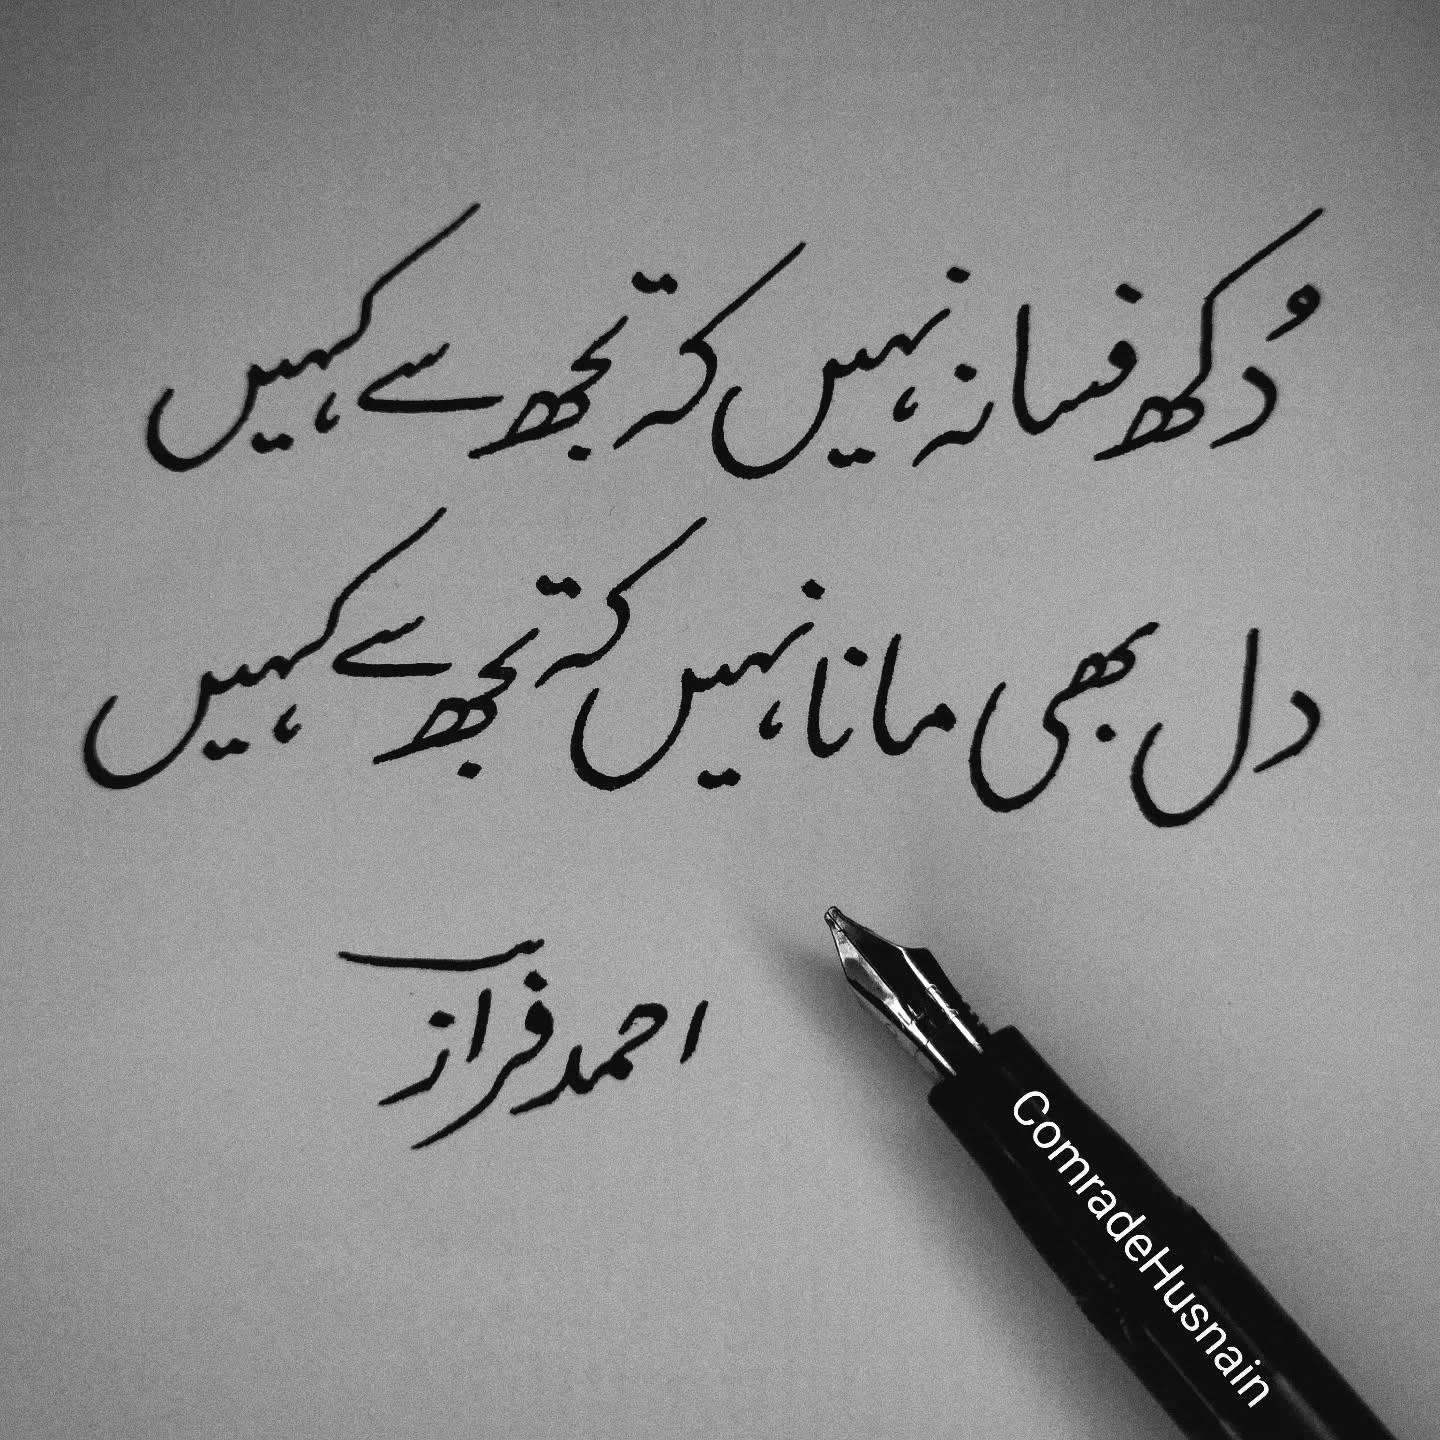 دُکھ فسانہ نہیں کہ تجھ سے کہیں
دل بھی مانا نہیں کہ تجھ سے کہیں
احمد فراز
ComradeHusnain